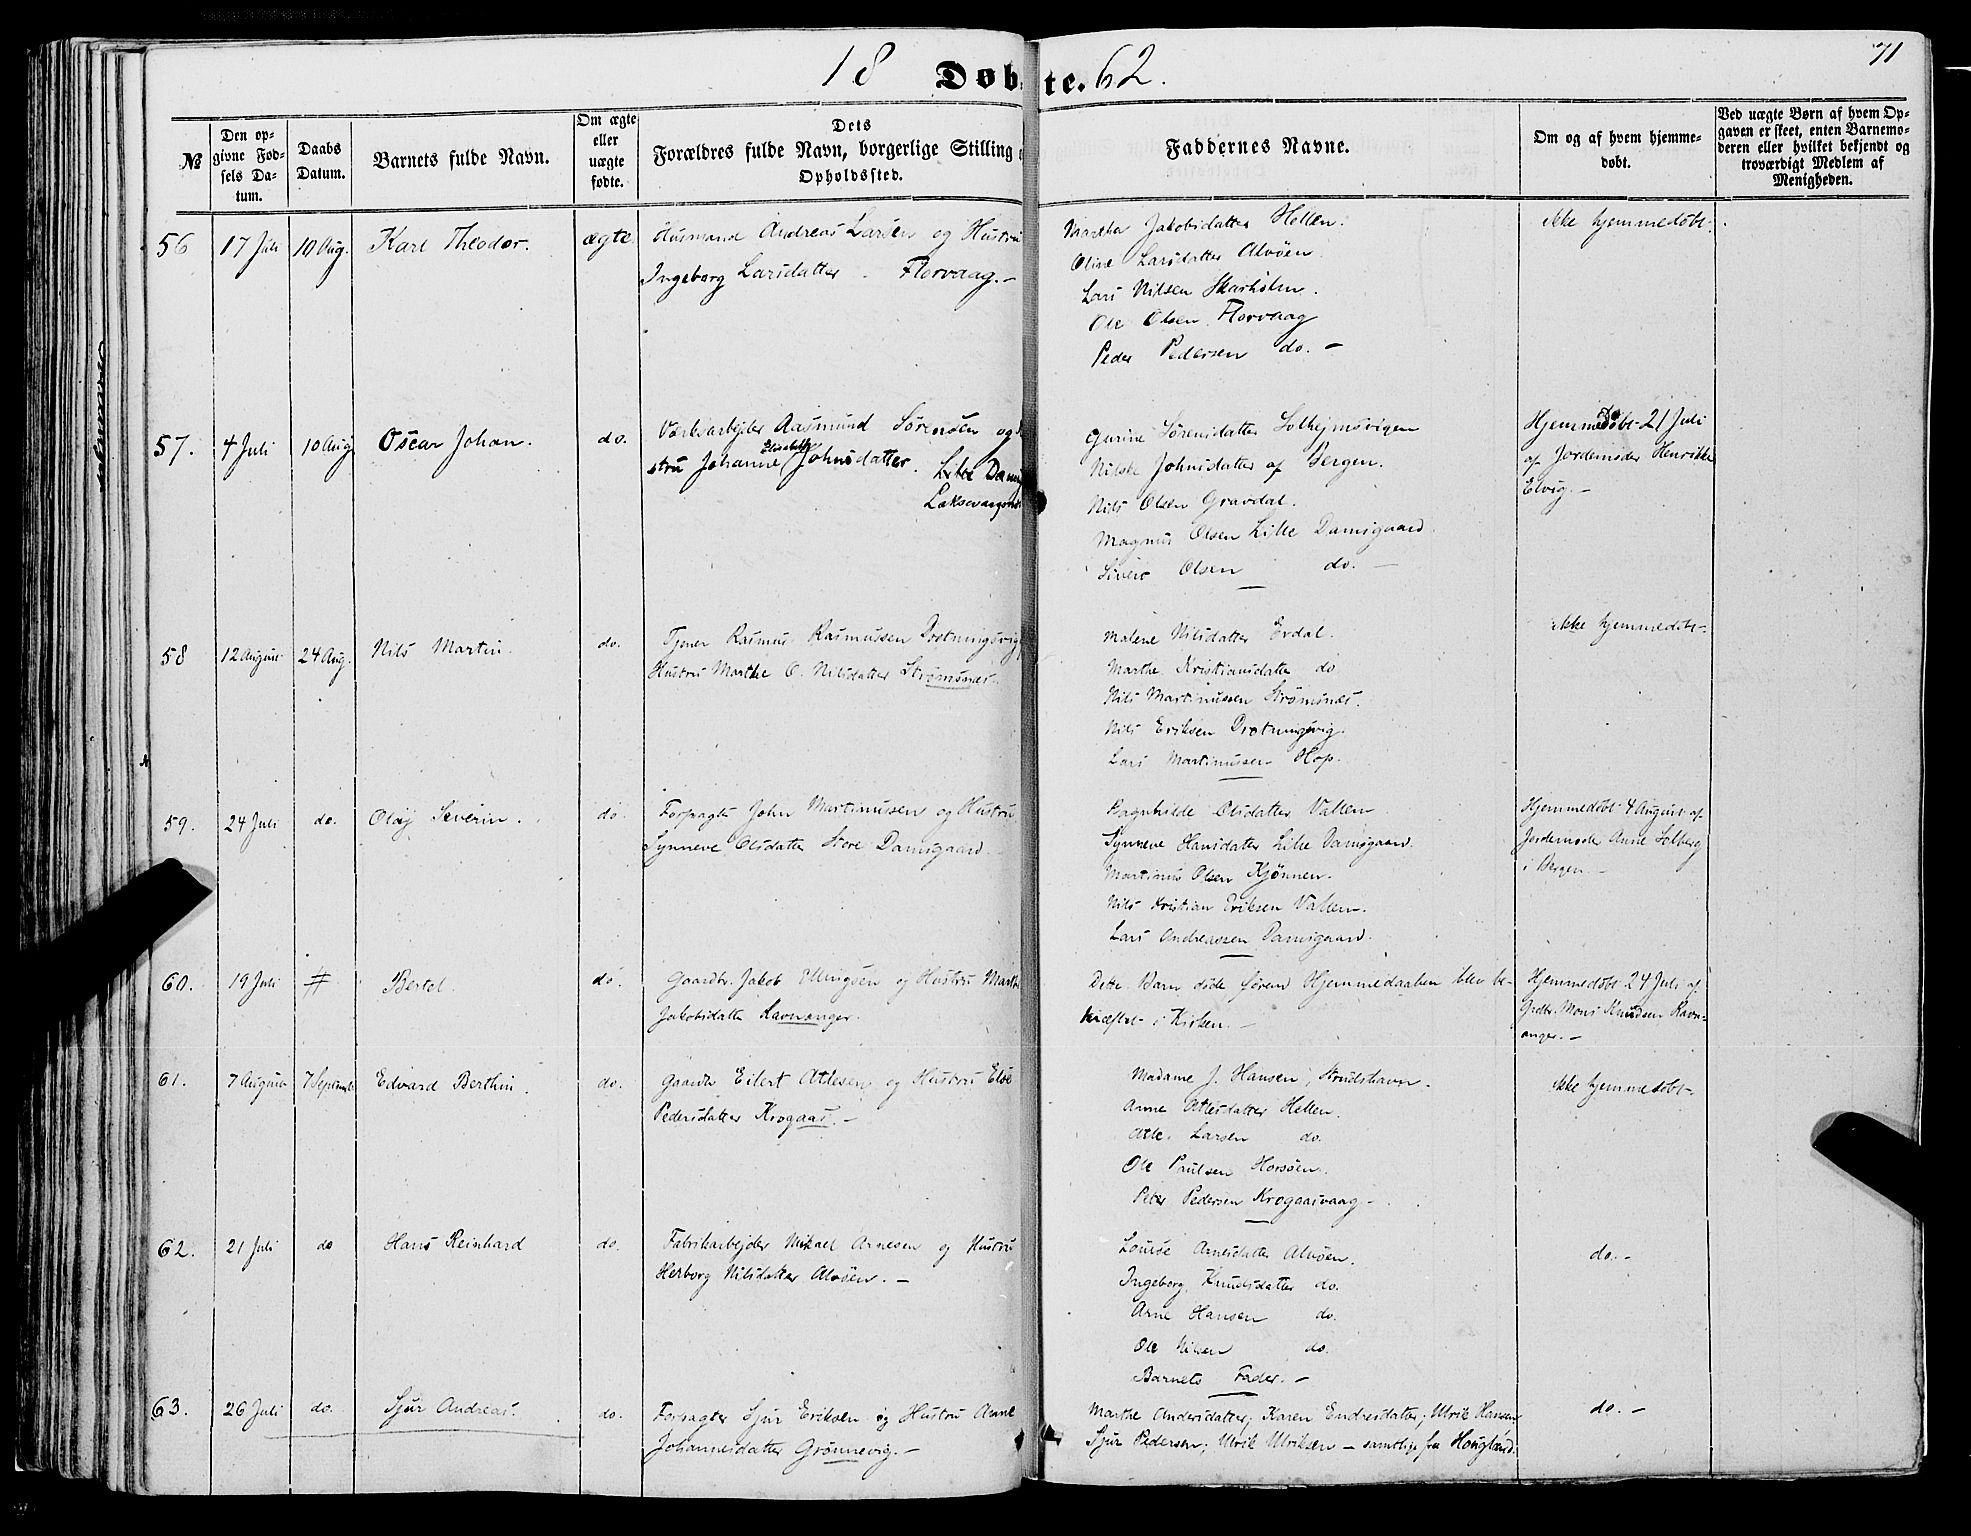 71
18 Døbte. 62.
№
Den op-
givne Fød-
sels Da-
tum.
Daabs
Datum.
Barnets fulde Navn.
Om ægte
eller
uægte
fødte.
Dets
Forældres fulde Navn, borgerlige Stilling o
Opholdssted.
Faddernes Navne.
Om og af hvem hjemme-
døbt.
Ved uægte Børn af hvem Op-
gaven er skeet, enten Barnemo-
deren eller hvilket bekjendt og
troværdigt Medlem af
Menigheden.
56 17 Juli 10 Aug. Karl Theodor. ægte.
Husmand Andreas Larsen og Hustru
Ingeborg Larsdatter. Florvaag. –
Martha Jakobsdatter Hellen.
Oline Larsdatter Alvøen.
Lars Nilsen Skarholm.
Ole Olsen Florvaag
Peder Pedersen do. –
ikke hjemmedøbt.
57. 4 Juli 10 Aug Oscar Johan. do.
Værksarbejder Aasmund Sørensen og
stru Johanne Elisabeth Johnsdatter. Lille Dams
Laksevaag
Gurine Sørensdatter Solhejmsvigen
Nilske Johnsdatter af Bergen.
Nils Olsen Gravdal.
Magnus Olsen Lille Damsgaard
Sivert Olsen do. –
Hjemmedøbt 21 Juli
af Jordemoder Henrikke
Elvig. –
58 12 August 24 Aug. Nils Martin. do.
Tjener Rasmus Rasmussen Drotningsvig
Hustru Marthe O. Nilsdatter Strømsnes.
Malene Nilsdatter Erdal.
Marthe Kristiansdatter do
Nils Martinussen Strømsnes.
Nils Eriksen Drotningsvig.
Lars Martinussen Hop.
ikke hjemmedøbt.
59. 24 Juli do. Olaj Severin. do.
Forpagter John Martinusen og Hustru
Synneve Olsdatter Store Damsgaard.
Ragnhilde Olsdatter Vallen
Synneve Hansdatter Lille Damsgaard.
Martinus Olsen Kjønnen.
Nils Kristian Eriksen Vallen.
Lars Andreassen Damsgaard.
Hjemmedøbt 4 August af
Jordemoder Anne Solberg
i Bergen –
60. 19 Juli # Bertel. do.
Gaardbr. Jakob Ellingsen og Hustru Marth
Jakobsdatter Ravnanger.
Dette Barn døde førend Hjemmedaaben blev be-
kræftet i Kirken. –
Hjemmedøbt 24 Juli af
Grdbr. Mons Knudsen Ravn-
anger. –
61. 7 August 7 Septembr Edvard Berthin. do.
Gaardbr Eilert Atlesen og Hustru Else
Pedersdatter Krogaas. –
Madame J. Hansen, Strudshavn.
Anne Atlesdatter Hellen.
Atle Larsen do.
Ole Paulsen Horsøen.
Peter Pedersen Krogaasvaag –
ikke hjemmedøbt –
62. 21 Juli do Hans Reinhard do.
Fabrikarbejder Mikael Arnesen og Hustru
Herborg Nilsdatter Alvøen. –
Lovise Arnesdatter Alvøen.
Ingeborg Knudsdatter do.
Arne Hansen do.
Ole Nilsen do.
Barnets Fader. –
do. –
63. 26 Juli do. Sjur Andreas. do.
Forpagter Sjur Eriksen og Hustru Anne
Johannesdatter Grønnevig. –
Marthe Andersdatter; Karen Endresdatter; Ulrik Hansen
Sjur Pedersen; Ulrik Ulriksen – samtlige fra Hougland.
do. –